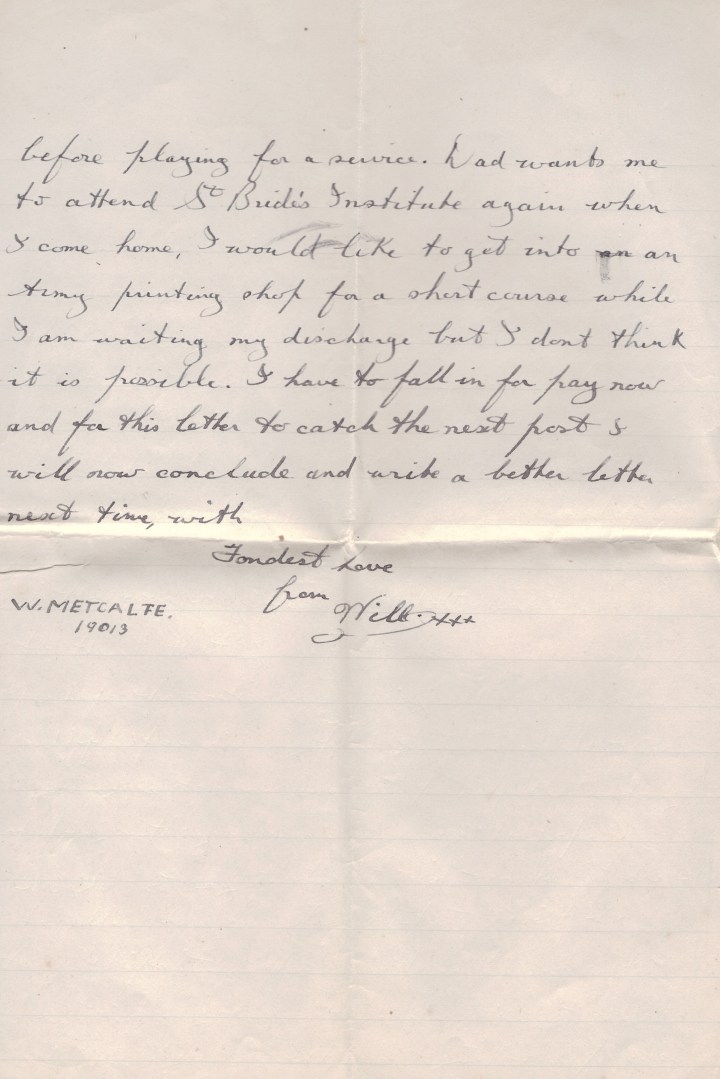 before playing for a service. Dad wants me
to attend St Bride's Institute again when
I come home, I would like to get into an an
Army printing shop for a short course while
I am waiting my discharge but I dont think
it is possible. I have to fall in for pay now
and for this letter to catch the next post I
will now conclude and write a better letter
next time, with
Fondest Love
from
Will. xxx
W. METCALFE.
19013